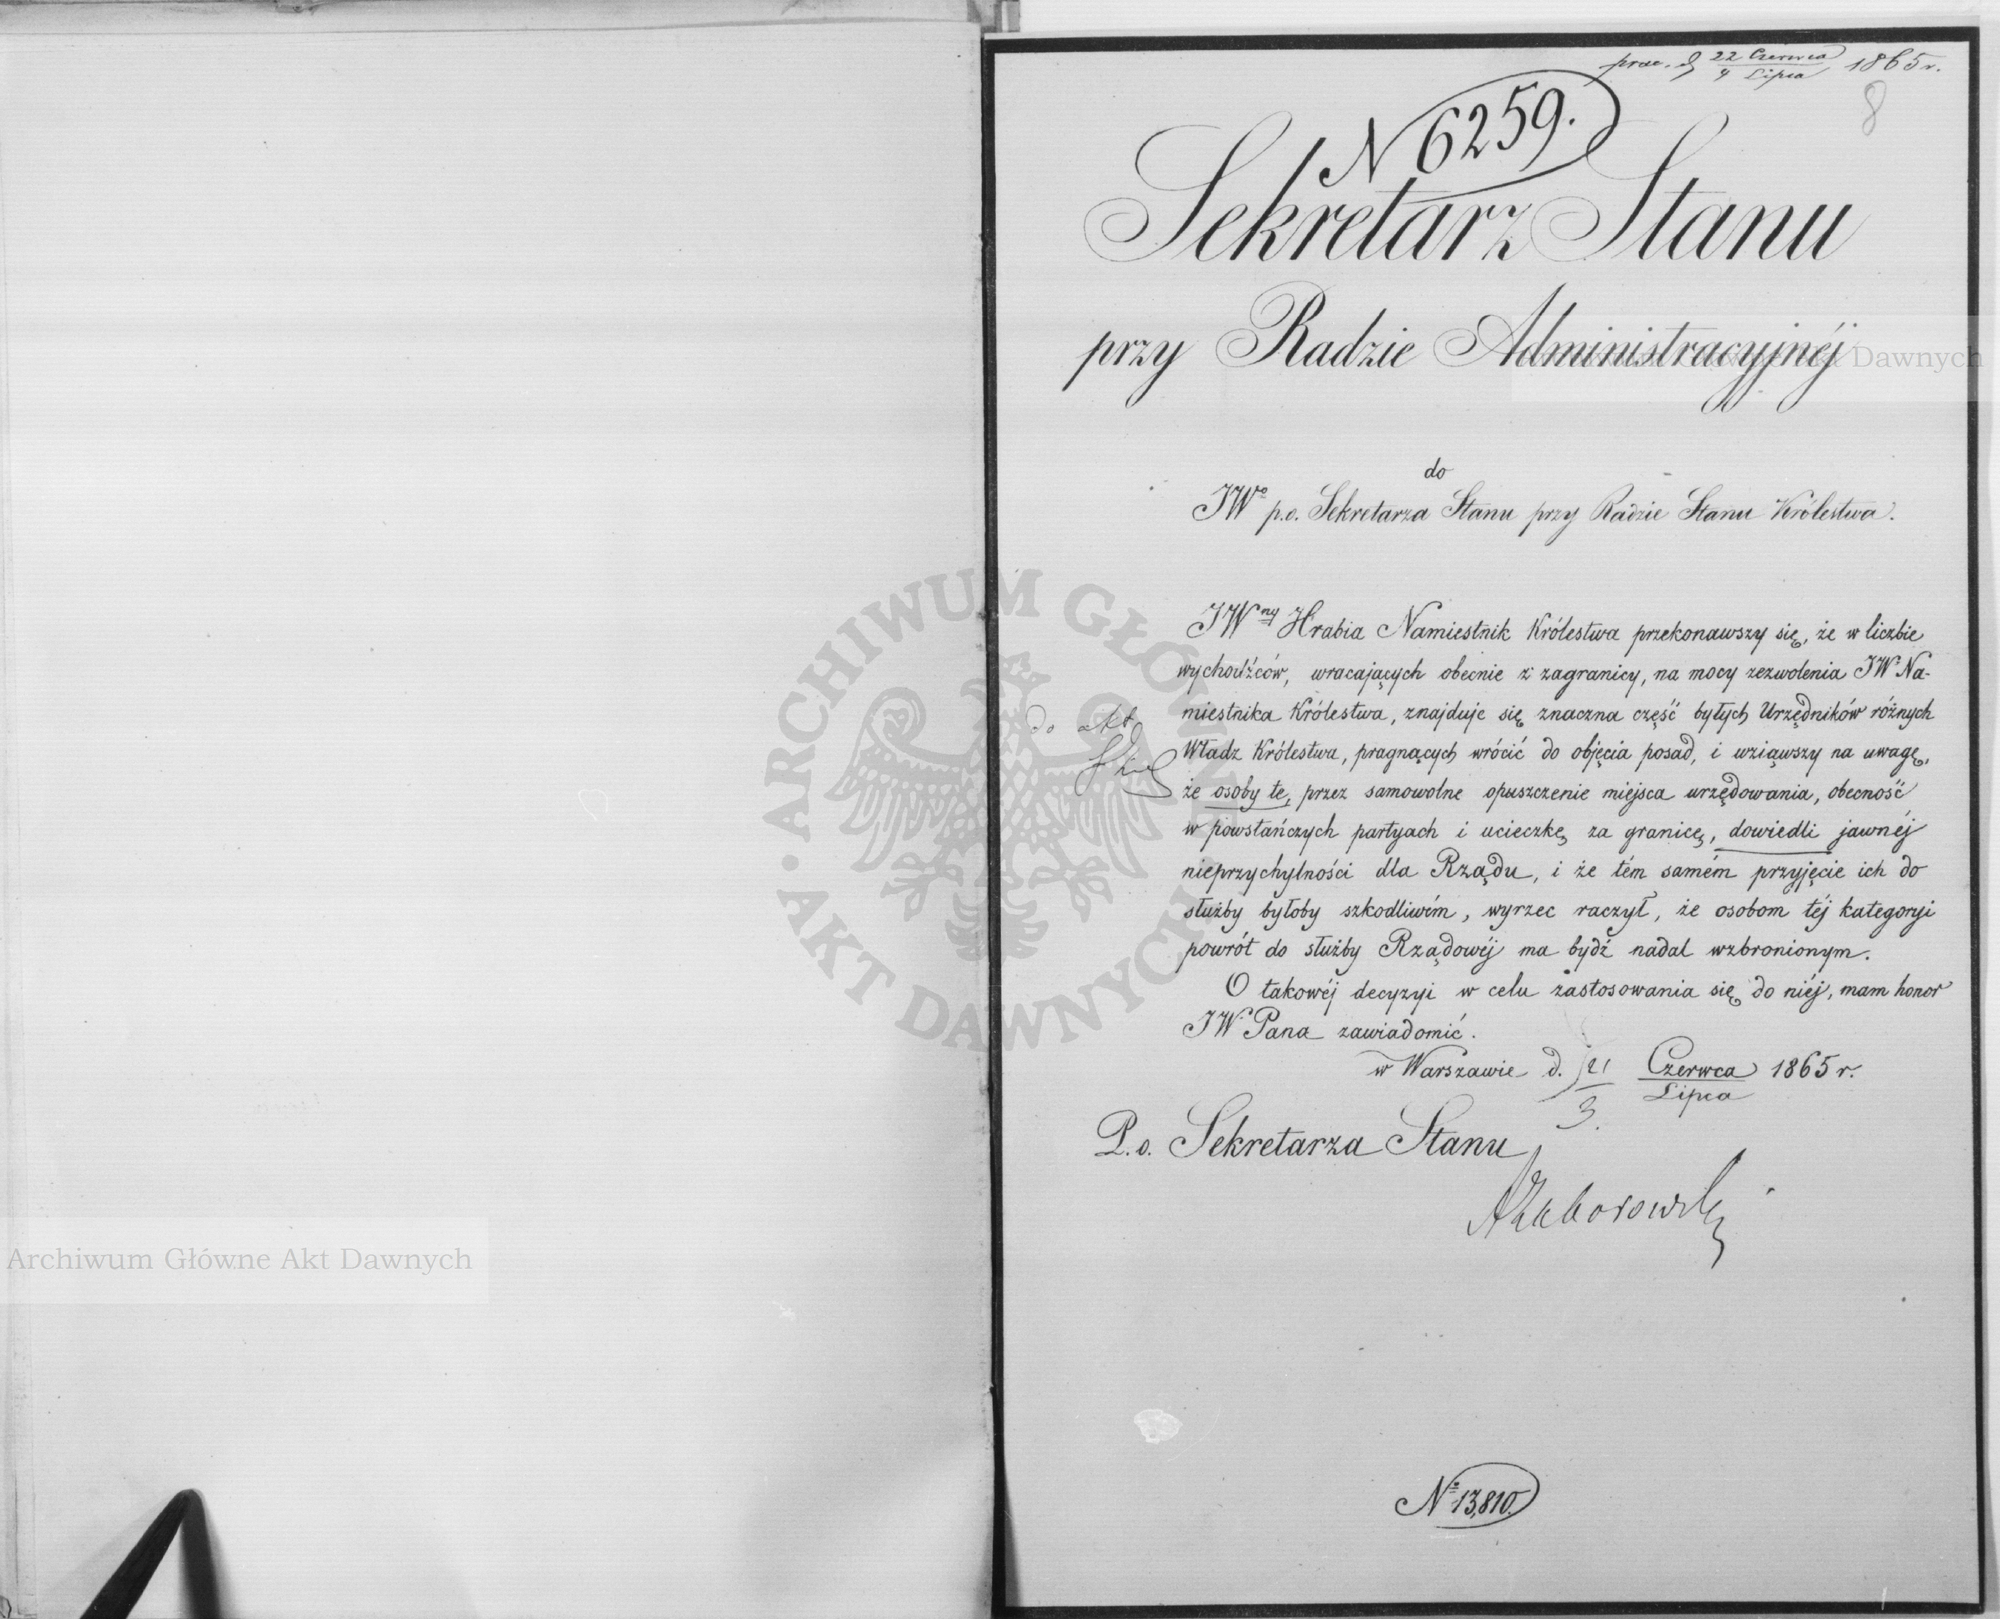 prae. d 22 Czerwca / 4 Lipca 1865 r.
8
N 6259.
Sekretarz Stanu
przy Radzie Administracyjnéj
do
JWo p.o. Sekretarza Stanu przy Radzie Stanu Królestwa.
JWny Hrabia Namiestnik Królestwa przekonawszy się, że w liczbie
wychodźców, wracających obecnie z zagranicy, na mocy zezwolenia JW. Na-
miestnika Królestwa, znajduje się znaczna część byłych Urzędników różnych
Władz Królestwa, pragnących wrócić do objęcia posad, i wziąwszy na uwagę,
że osoby te, przez samowolne opuszczenie miejsca urzędowania, obecność
w powstańczych partyach i ucieczkę za granicę, dowiedli jawnéj
nieprzychylności dla Rządu, i że tém samém przyjęcie ich do
służby byłoby szkodliwém, wyrzec raczył, że osobom téj kategoryi
powrót do służby Rządowéj ma bydź nadal wzbronionym.
O takowéj decyzyi w celu zastosowania się do niéj, mam honor
JW. Pana zawiadomić.
w Warszawie d. 21 / 3. Czerwca / Lipca 1865 r.
P.o. Sekretarza Stanu
AZaborowski
No 13,810.
do akt
Archiwum Główne Akt Dawnych
Dawnych
ARCHIWUM GŁÓWNE • AKT DAWNYCH •